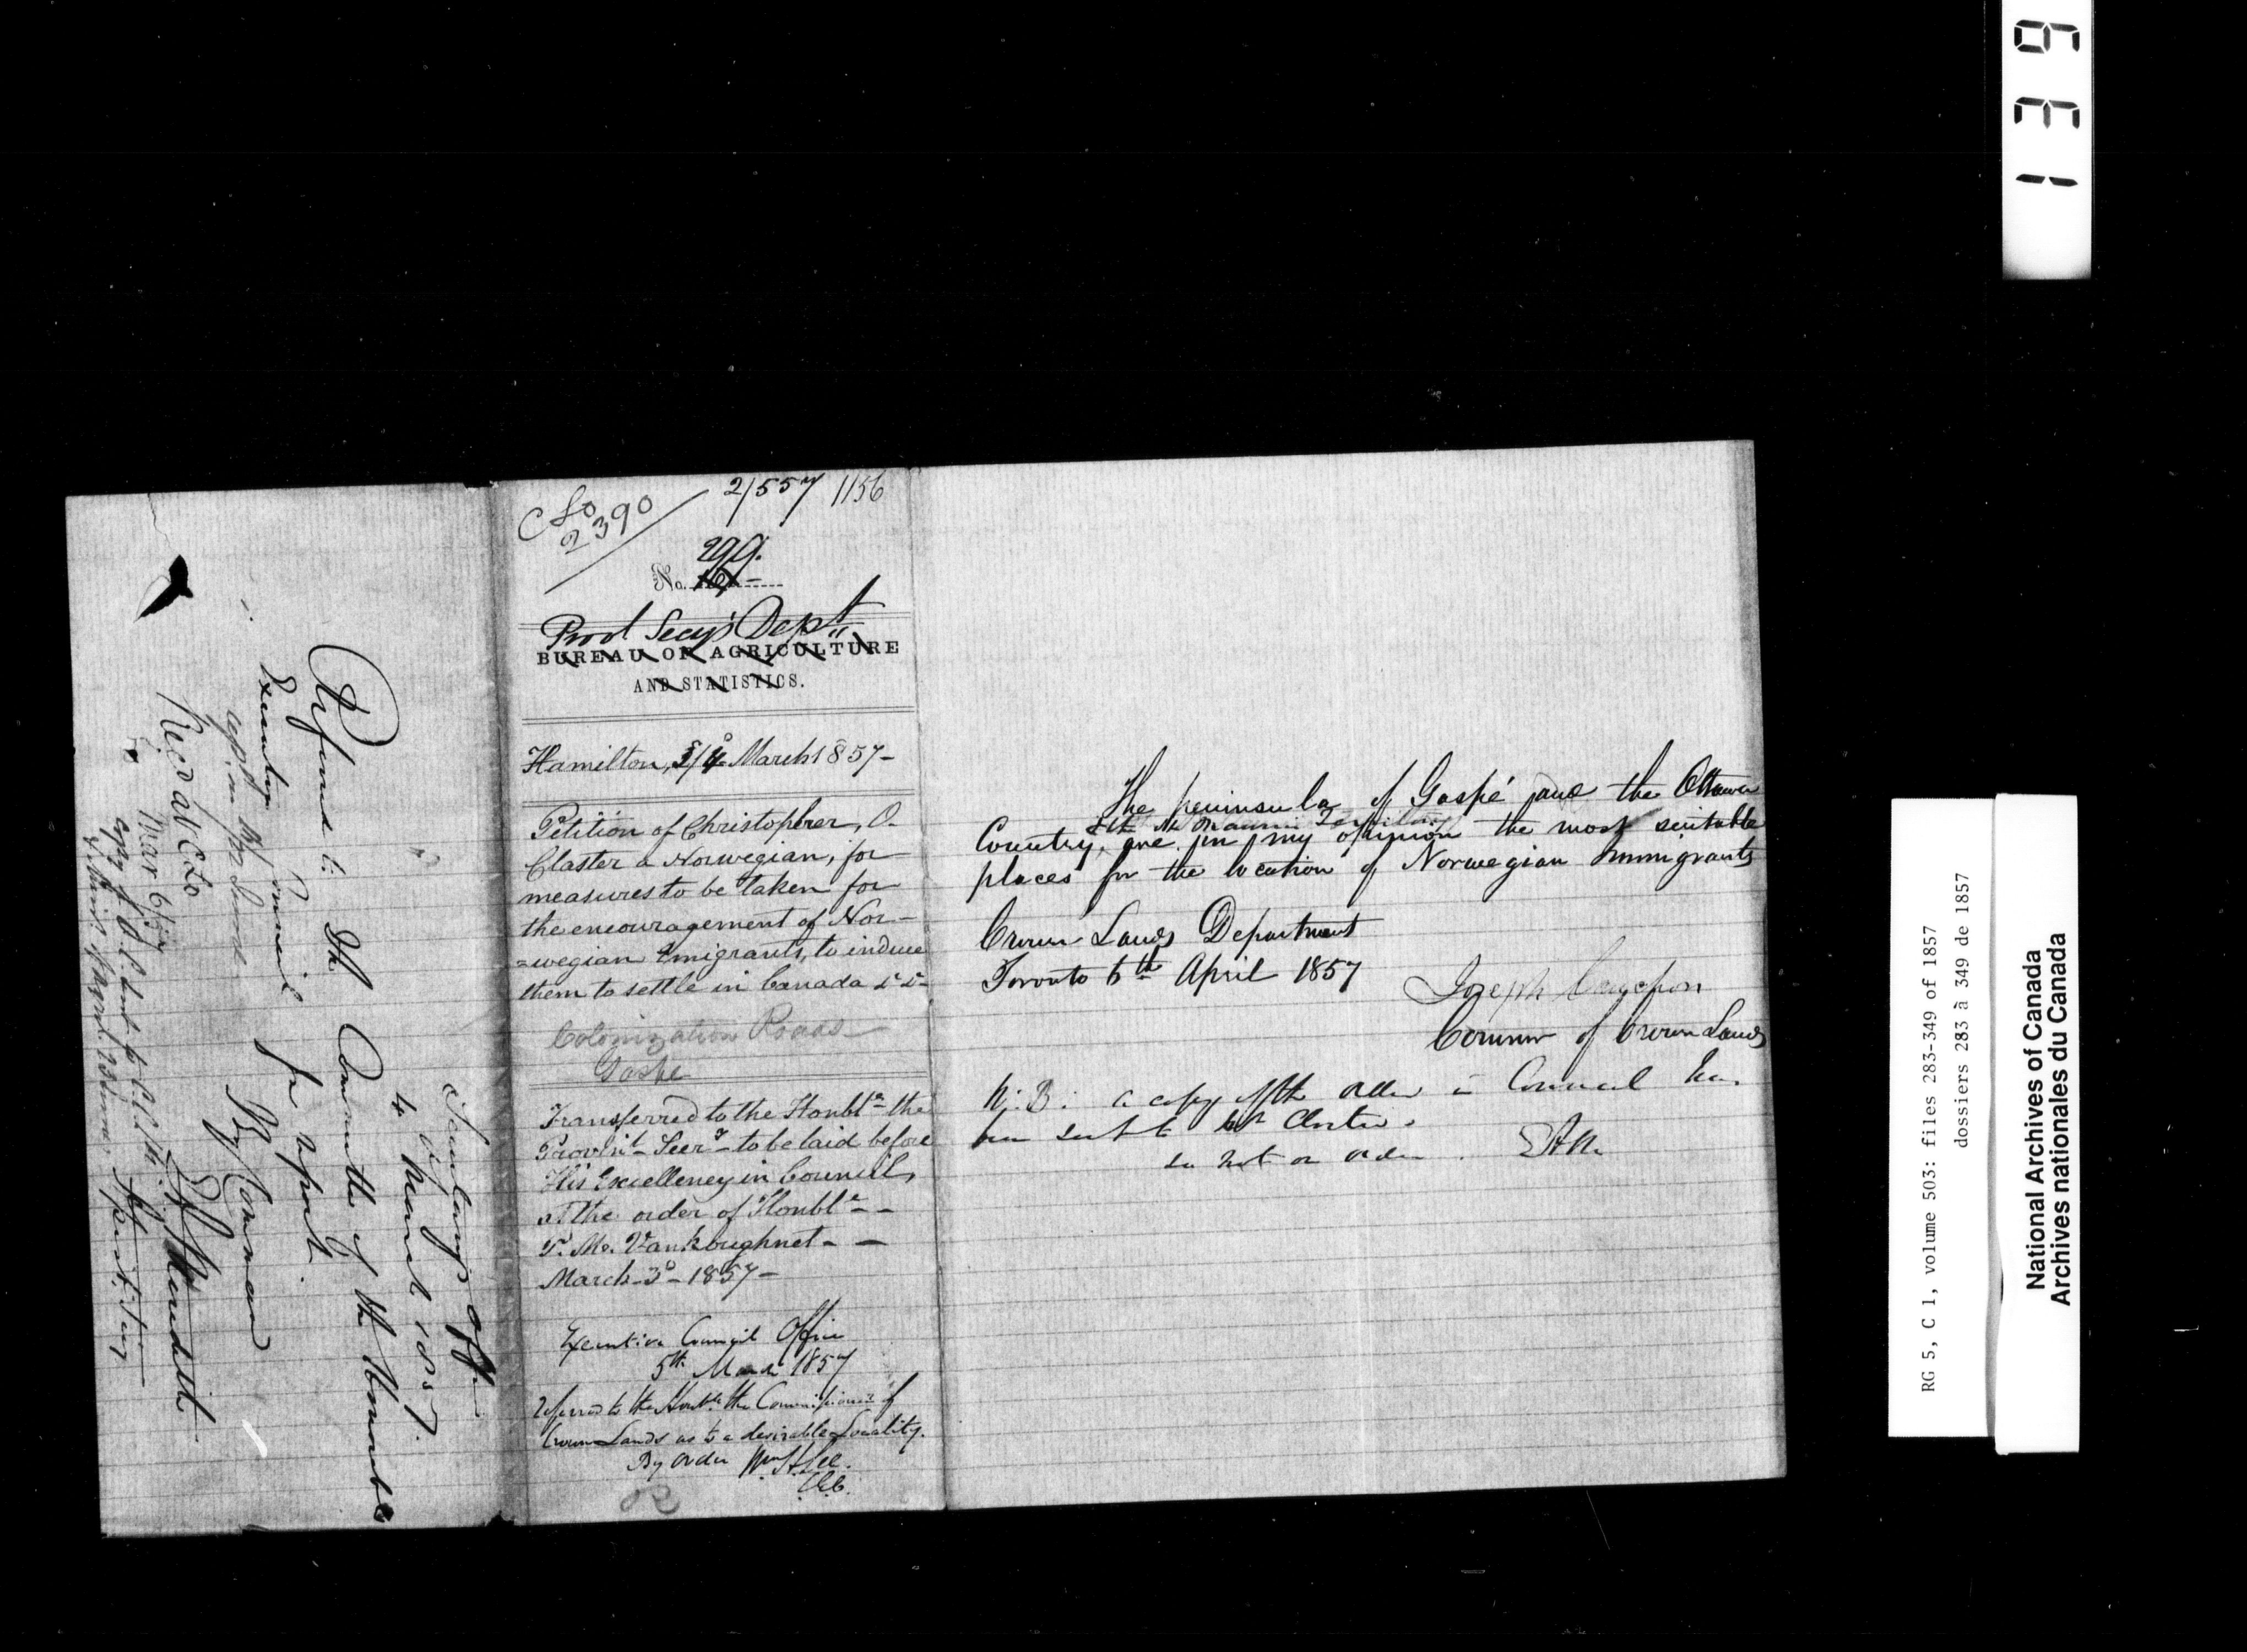 139
C L O
2390
2/557 1156
299.
No.
Provl Secy's Dept
BUREAU OF AGRICULTURE
AND STATISTICS.
Hamilton, 2/4 March 1857-
Petition of Christopher, O.
Claster a Norwegian, for
measures to be taken for
the encouragement of Nor-
=wegian Emigrants, to induce
them to settle in Canada &c &c
Colonization Roads
Gaspe
Transferred to the Honble the
Provinl Secry to be laid before
His Excellency in Council,
by the order of Honble
P. M. Vankoughnet
March 3d 1857-
Executive Council Office
5th March 1857
Referred to the Honble the Commissioner of
Crown Lands as to a desirable Locality.
By order Wm H Lee.
C.E.C.
The peninsula of Gaspé and the Ottawa
& the St Maurice Territory
Country, are in my opinion the most suitable
places for the location of Norwegian Immigrants
Crown Lands Department
Toronto 6th April 1857
Joseph Cauchon
Commr of Crown Lands
N.B. a copy of the order in Council has
been sent to Mr Closter.
Secretary's Off.
4 March 1857.
Referred to the Committee of the Honorable
Executive Council for report.
By Command
E A Meredith
Recd at C L O
Mar 6/57
RG 5, C 1, volume 503: files 283-349 of 1857
dossiers 283 à 349 de 1857
National Archives of Canada
Archives nationales du Canada